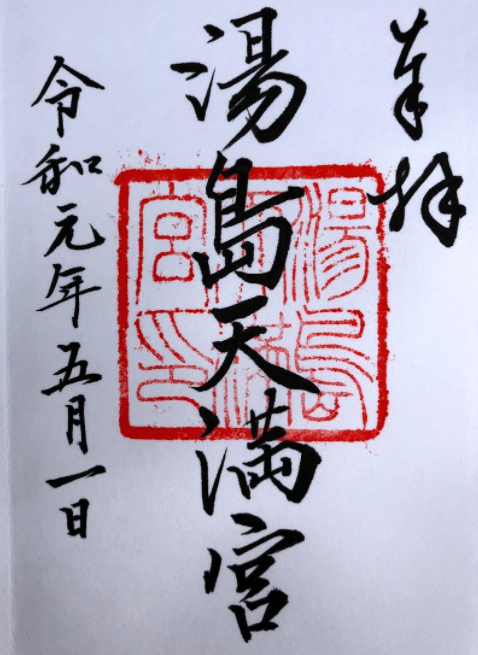 奉拝
湯島天満宮
令和元年五月一日
湯島天満宮印